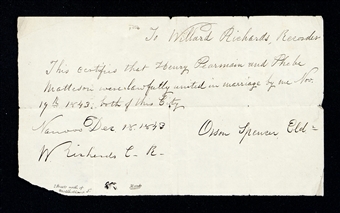 To Willard Richards, Recorder
This certifies that Henry Pearmain and Phebe
Matteson were lawfully united in marriage by me Nov.
19th 1843, both of this City
Nauvoo Dec 18. 1843 Orson Spencer Eld=
W Richards C. R.